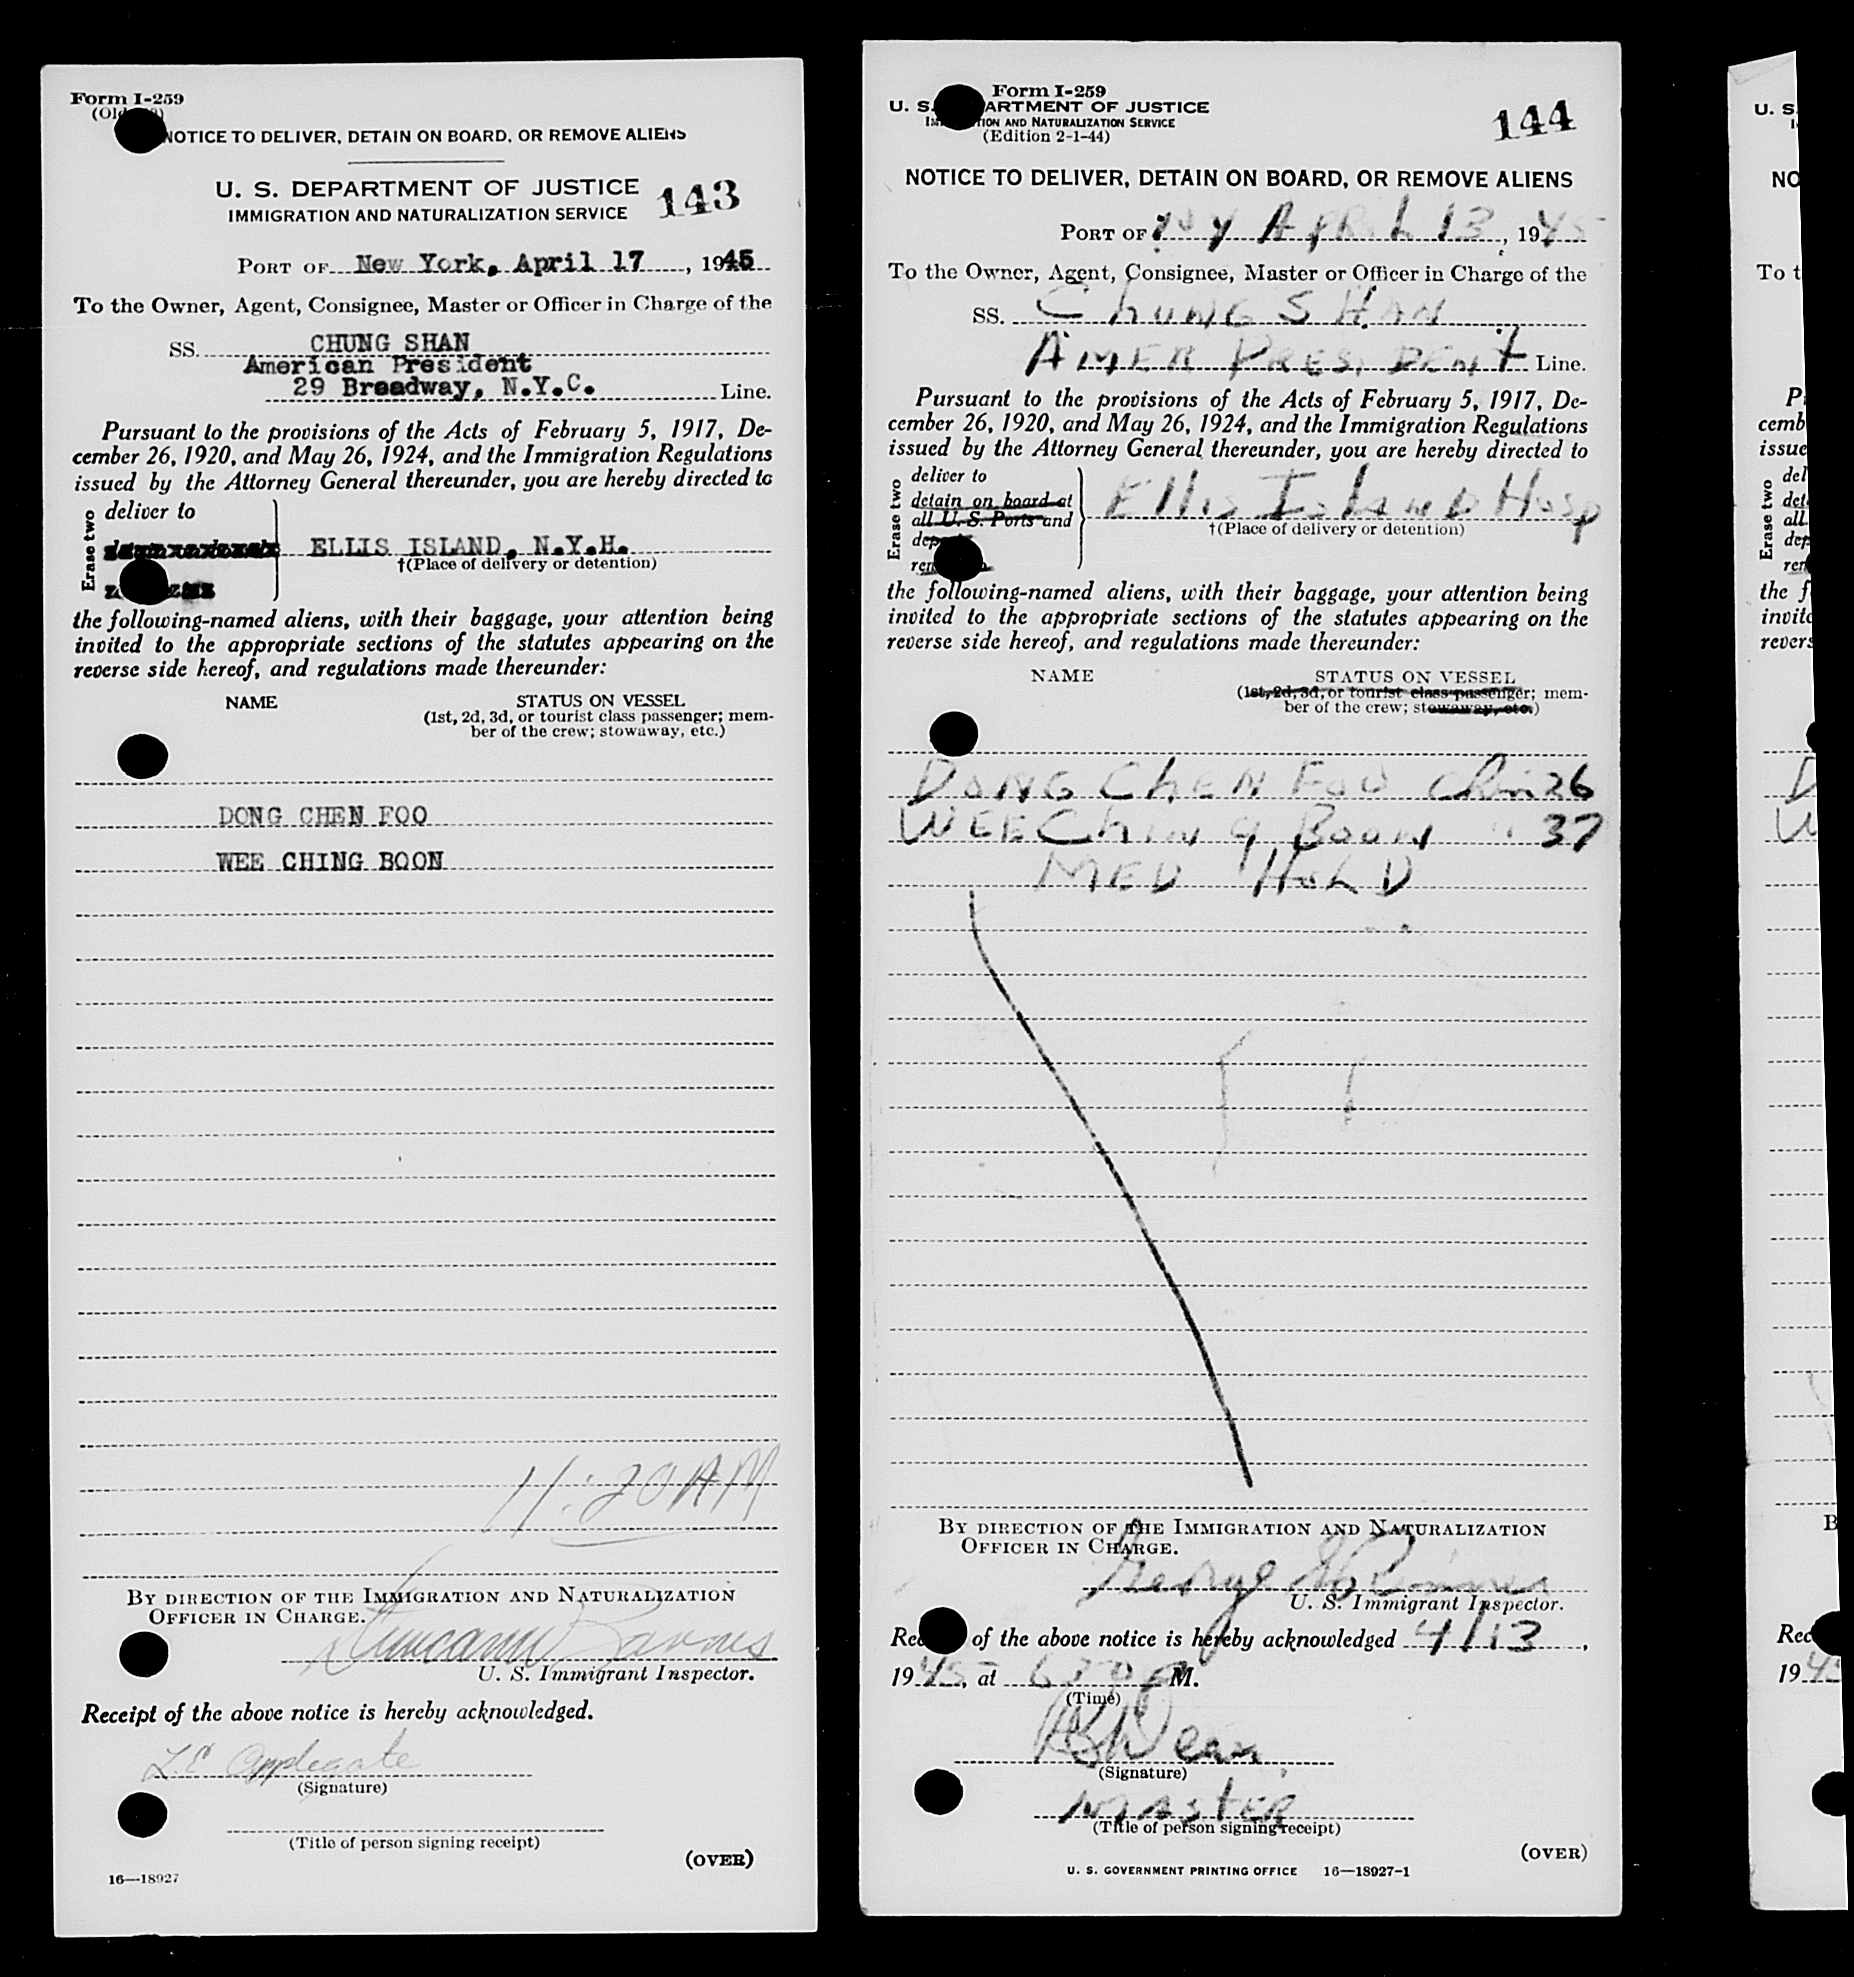 Form I-259
(Old
NOTICE TO DELIVER, DETAIN ON BOARD, OR REMOVE ALIENS
U. S. DEPARTMENT OF JUSTICE
143
IMMIGRATION AND NATURALIZATION SERVICE
PORT OF New York, April 17, 1945
To the Owner, Agent, Consignee, Master or Officer in Charge of the
SS. CHUNG SHAN
American President
29 Broadway, N.Y.C. Line.
Pursuant to the provisions of the Acts of February 5, 1917, De-
cember 26, 1920, and May 26, 1924, and the Immigration Regulations
issued by the Attorney General thereunder, you are hereby directed to
Erase two
deliver to
ELLIS ISLAND, N.Y.H.
†(Place of delivery or detention)
the following-named aliens, with their baggage, your attention being
invited to the appropriate sections of the statutes appearing on the
reverse side hereof, and regulations made thereunder:
NAME STATUS ON VESSEL
(1st, 2d, 3d, or tourist class passenger; mem-
ber of the crew; stowaway, etc.)
DONG CHEN FOO
WEE CHING BOON
11:20 AM
BY DIRECTION OF THE IMMIGRATION AND NATURALIZATION
OFFICER IN CHARGE.
U. S. Immigrant Inspector.
Receipt of the above notice is hereby acknowledged.
L.E. Applegate
(Signature)
(Title of person signing receipt)
(OVER)
16—18927
Form I-259
U. S. DEPARTMENT OF JUSTICE
IMMIGRATION AND NATURALIZATION SERVICE
(Edition 2-1-44)
144
NOTICE TO DELIVER, DETAIN ON BOARD, OR REMOVE ALIENS
PORT OF NY APRIL 13, 1945
To the Owner, Agent, Consignee, Master or Officer in Charge of the
SS. CHUNG SHAN
AMER PRESIDENT Line.
Pursuant to the provisions of the Acts of February 5, 1917, De-
cember 26, 1920, and May 26, 1924, and the Immigration Regulations
issued by the Attorney General thereunder, you are hereby directed to
Erase two
deliver to
detain on board at
all U. S. Ports and
Ellis Island Hosp
†(Place of delivery or detention)
the following-named aliens, with their baggage, your attention being
invited to the appropriate sections of the statutes appearing on the
reverse side hereof, and regulations made thereunder:
NAME STATUS ON VESSEL
(1st, 2d, 3d, or tourist class passenger; mem-
ber of the crew; stowaway, etc.)
DONG CHEN FOO Chin 26
WEE CHING BOON " 37
MED HOLD
BY DIRECTION OF THE IMMIGRATION AND NATURALIZATION
OFFICER IN CHARGE.
George
U. S. Immigrant Inspector.
of the above notice is hereby acknowledged 4/13,
1945, at 630 P M.
(Time)
(Signature)
MASTER
(Title of person signing receipt)
(OVER)
U. S. GOVERNMENT PRINTING OFFICE 16—18927-1
U. S.
NO
To t
P
cemb
issue
Erase two
del
all
the f
invite
revers
D
W
B
Rec
1945